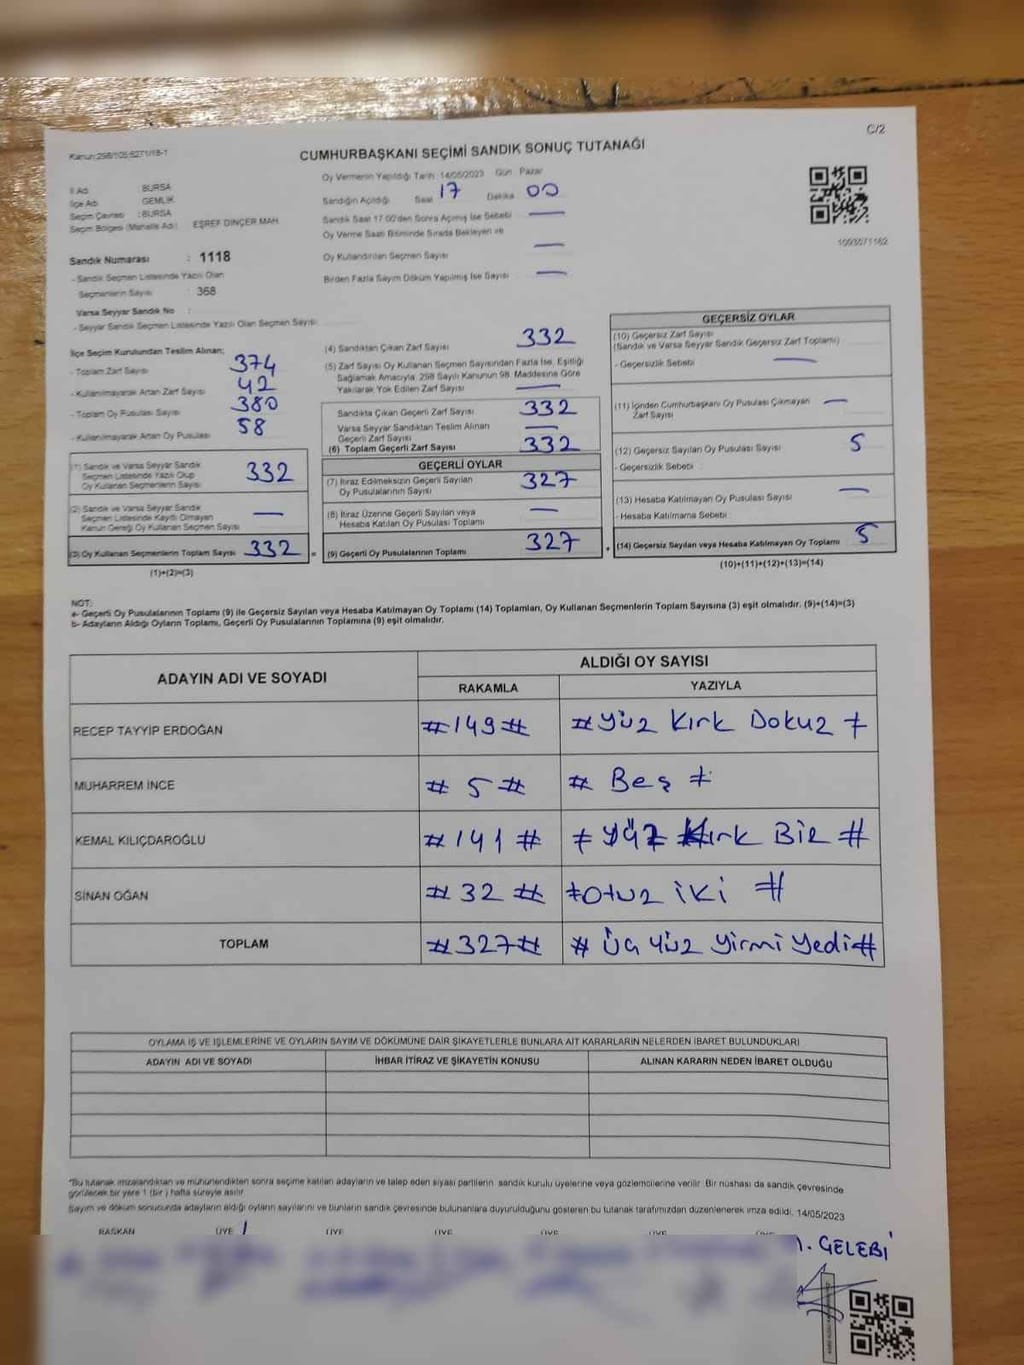 C/2
Kanun:298/105;6271/18-1
CUMHURBAŞKANI SEÇİMİ SANDIK SONUÇ TUTANAĞI
İl Adı : BURSA
İlçe Adı : GEMLİK
Seçim Çevresi : BURSA
Seçim Bölgesi (Mahalle Adı) EŞREF DİNÇER MAH.
Oy Vermenin Yapıldığı Tarih :14/05/2023 Gün Pazar
Sandığın Açıldığı Saat 17 Dakika 00
Sandık Saat 17.00'den Sonra Açılmış İse Sebebi —
Oy Verme Saati Bitiminde Sırada Bekleyen ve
Oy Kullandırılan Seçmen Sayısı —
Birden Fazla Sayım Döküm Yapılmış İse Sayısı —
1093071162
Sandık Numarası : 1118
- Sandık Seçmen Listesinde Yazılı Olan
Seçmenlerin Sayısı : 368
Varsa Seyyar Sandık No :
- Seyyar Sandık Seçmen Listesinde Yazılı Olan Seçmen Sayısı:
İlçe Seçim Kurulundan Teslim Alınan;
- Toplam Zarf Sayısı 374
- Kullanılmayarak Artan Zarf Sayısı 42
- Toplam Oy Pusulası Sayısı 380
- Kullanılmayarak Artan Oy Pusulası 58
(1) Sandık ve Varsa Seyyar Sandık
Seçmen Listesinde Yazılı Olup
Oy Kullanan Seçmenlerin Sayısı 332
(2) Sandık ve Varsa Seyyar Sandık
Seçmen Listesinde Kayıtlı Olmayan
Kanun Gereği Oy Kullanan Seçmen Sayısı —
(3) Oy Kullanan Seçmenlerin Toplam Sayısı 332 =
(1)+(2)=(3)
(4) Sandıktan Çıkan Zarf Sayısı 332
(5) Zarf Sayısı Oy Kullanan Seçmen Sayısından Fazla İse, Eşitliği
Sağlamak Amacıyla; 298 Sayılı Kanunun 98. Maddesine Göre
Yakılarak Yok Edilen Zarf Sayısı —
Sandıkta Çıkan Geçerli Zarf Sayısı 332
Varsa Seyyar Sandıktan Teslim Alınan
Geçerli Zarf Sayısı —
(6) Toplam Geçerli Zarf Sayısı 332
GEÇERLİ OYLAR
(7) İtiraz Edilmeksizin Geçerli Sayılan
Oy Pusulalarının Sayısı 327
(8) İtiraz Üzerine Geçerli Sayılan veya
Hesaba Katılan Oy Pusulası Toplamı —
(9) Geçerli Oy Pusulalarının Toplamı 327 +
GEÇERSİZ OYLAR
(10) Geçersiz Zarf Sayısı
(Sandık ve Varsa Seyyar Sandık Geçersiz Zarf Toplamı)
- Geçersizlik Sebebi : —
(11) İçinden Cumhurbaşkanı Oy Pusulası Çıkmayan
Zarf Sayısı —
(12) Geçersiz Sayılan Oy Pusulası Sayısı 5
- Geçersizlik Sebebi :
(13) Hesaba Katılmayan Oy Pusulası Sayısı —
- Hesaba Katılmama Sebebi :
(14) Geçersiz Sayılan veya Hesaba Katılmayan Oy Toplamı 5
(10)+(11)+(12)+(13)=(14)
NOT:
a- Geçerli Oy Pusulalarının Toplamı (9) ile Geçersiz Sayılan veya Hesaba Katılmayan Oy Toplamı (14) Toplamları, Oy Kullanan Seçmenlerin Toplam Sayısına (3) eşit olmalıdır. (9)+(14)=(3)
b- Adayların Aldığı Oyların Toplamı, Geçerli Oy Pusulalarının Toplamına (9) eşit olmalıdır.
ADAYIN ADI VE SOYADI
ALDIĞI OY SAYISI
RAKAMLA YAZIYLA
RECEP TAYYİP ERDOĞAN #149# #Yüz Kırk Dokuz #
MUHARREM İNCE # 5 # # Beş #
KEMAL KILIÇDAROĞLU #141 # # Yüz Kırk Bir #
SİNAN OĞAN #32 # #Otuz iki #
TOPLAM #327# # Üç Yüz Yirmi Yedi#
OYLAMA İŞ VE İŞLEMLERİNE VE OYLARIN SAYIM VE DÖKÜMÜNE DAİR ŞİKAYETLERLE BUNLARA AİT KARARLARIN NELERDEN İBARET BULUNDUKLARI
ADAYIN ADI VE SOYADI İHBAR İTİRAZ VE ŞİKAYETİN KONUSU ALINAN KARARIN NEDEN İBARET OLDUĞU
"Bu tutanak imzalandıktan ve mühürlendikten sonra seçime katılan adayların ve talep eden siyasi partilerin sandık kurulu üyelerine veya gözlemcilerine verilir. Bir nüshası da sandık çevresinde
görülecek bir yere 1 (bir) hafta süreyle asılır.
Sayım ve döküm sonucunda adayların aldığı oyların sayılarını ve bunların sandık çevresinde bulunanlara duyurulduğunu gösteren bu tutanak tarafımızdan düzenlenerek imza edildi. 14/05/2023
BAŞKAN ÜYE ÜYE ÜYE ÜYE ÜYE
GELEBİ